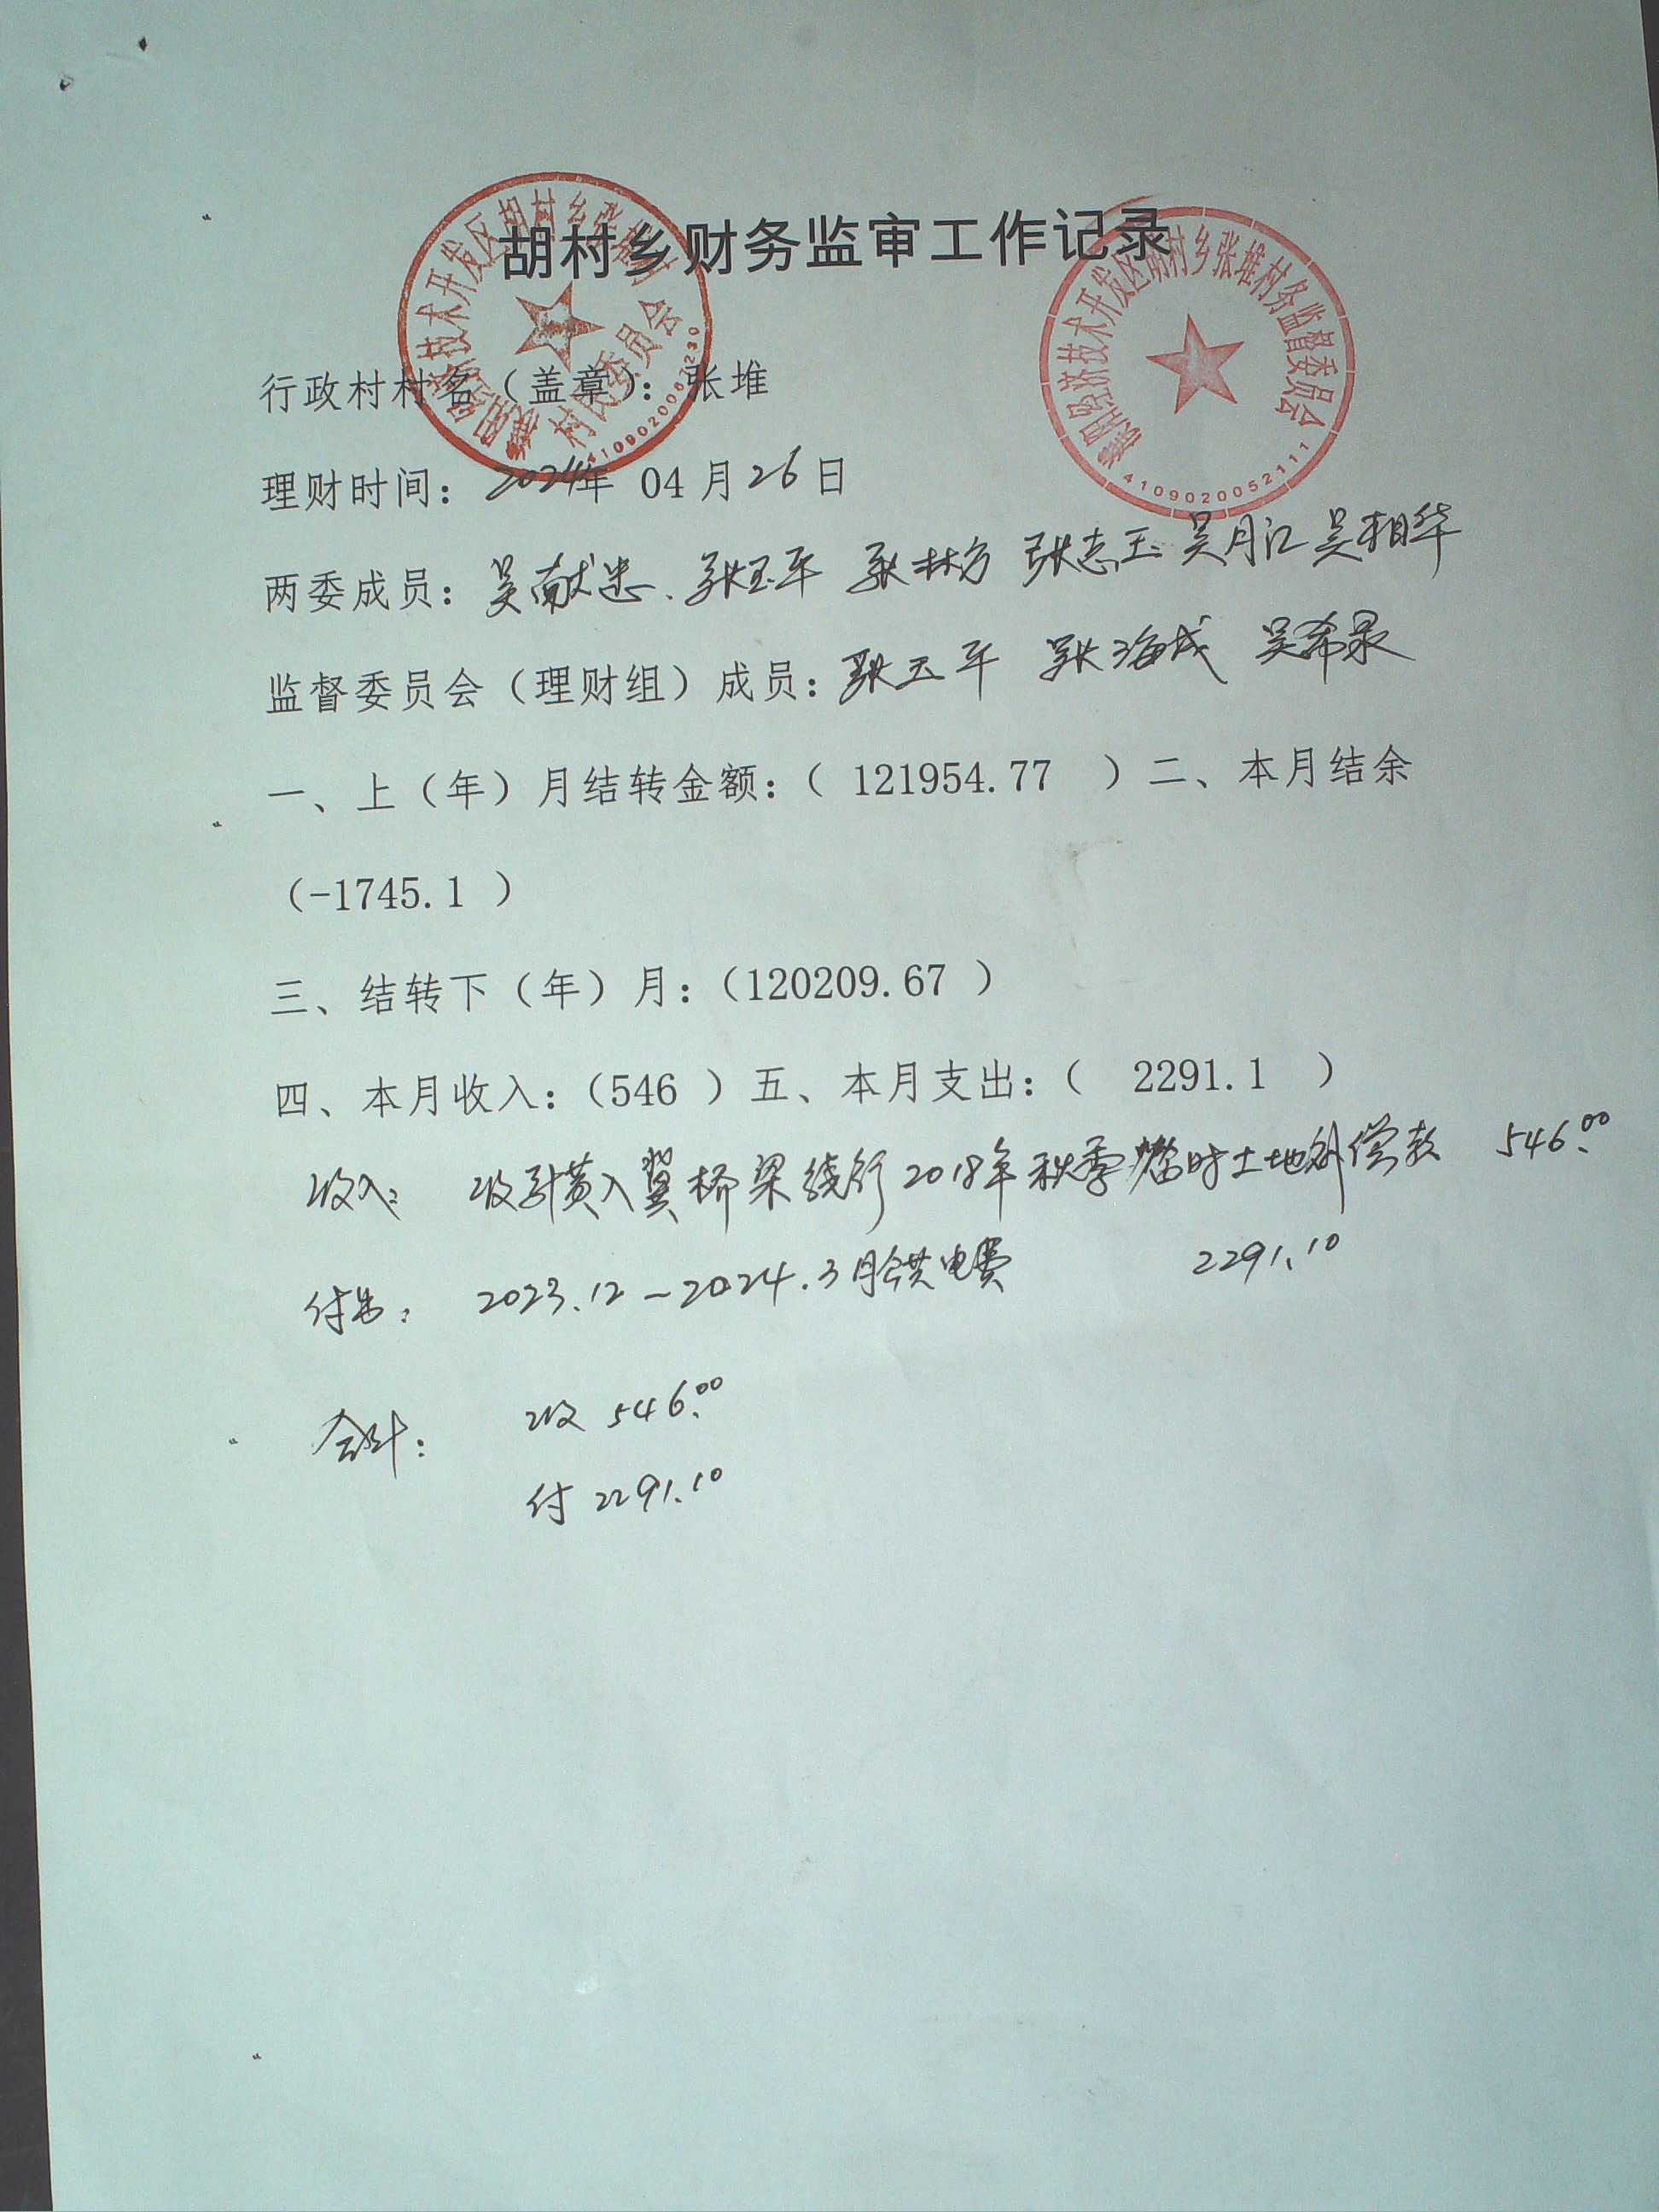 胡村乡财务监审工作记录
濮阳经济技术开发区胡村乡张堆村
村民委员会
4109020007230
濮阳经济技术开发区胡村乡张堆村务监督委员会
4109020052111
行政村村名（盖章）：张堆
理财时间：2024年 04月26日
两委成员：吴献忠、张玉平 张林方 张志玉 吴月江 吴相华
监督委员会（理财组）成员：张玉平 张海成 吴希录
一、上（年）月结转金额：（ 121954.77 ）二、本月结余
（-1745.1 ）
三、结转下（年）月：（120209.67 ）
四、本月收入：（546 ）五、本月支出：（ 2291.1 ）
收入： 收引黄入冀桥梁绕行2018年秋季临时土地补偿款 546.00
付出： 2023.12-2024.3月供电费 2291.10
合计： 收 546.00
付 2291.10